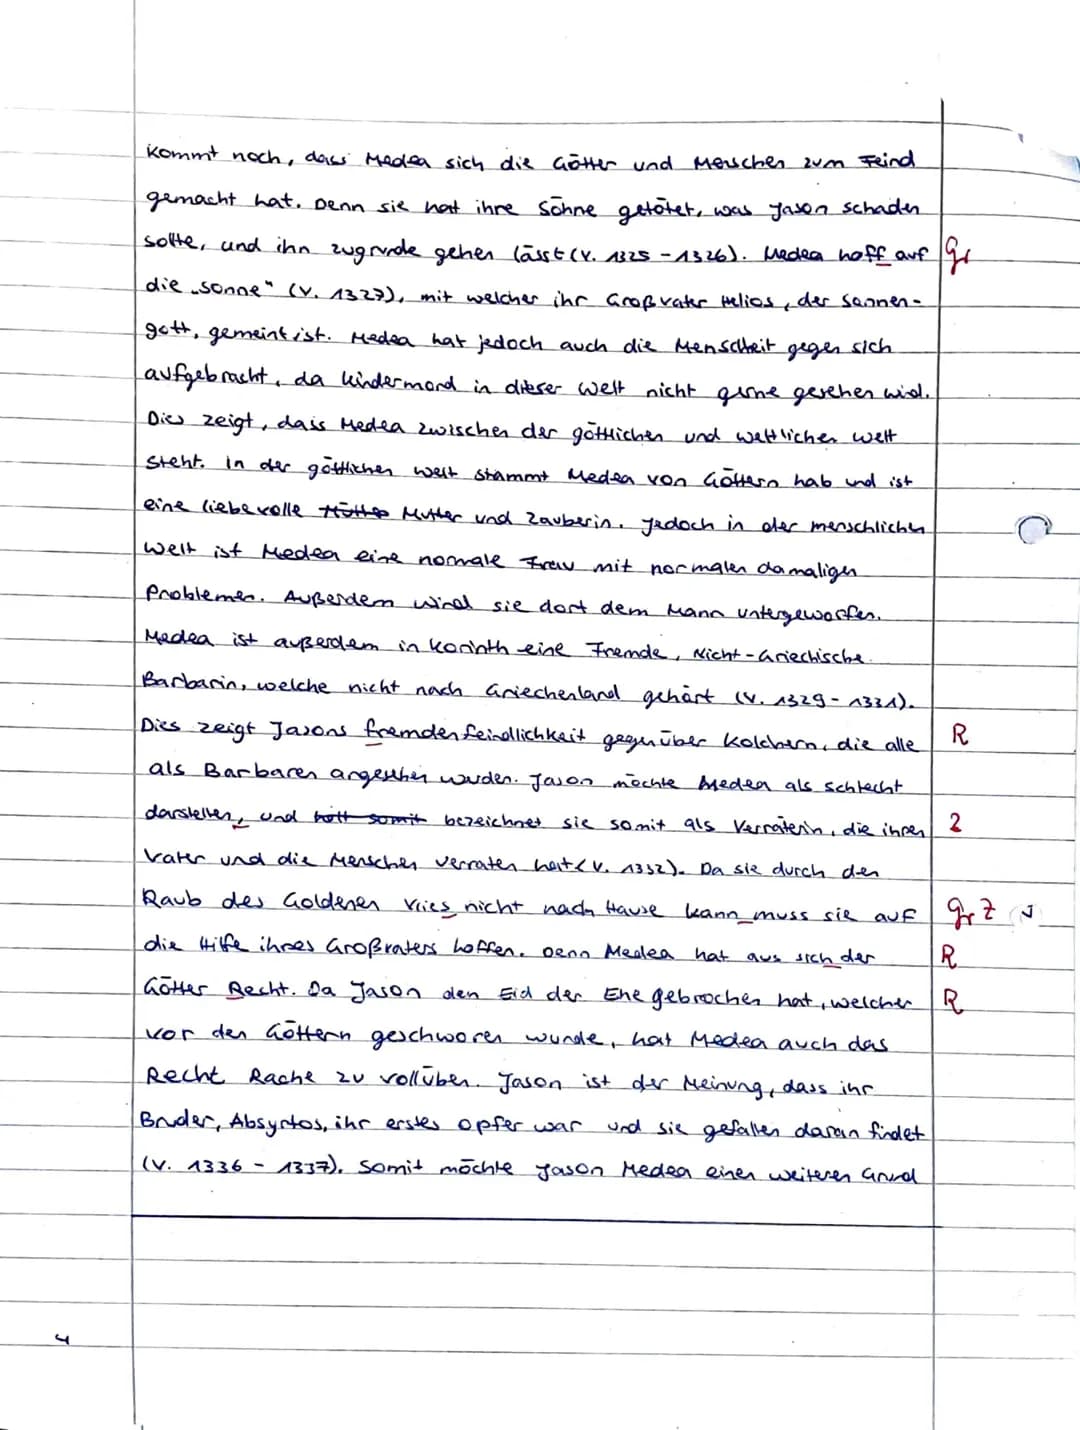 kommt noch, dass Medea sich die Götter und Menschen zum Feind
gemacht hat. Denn sie hat ihre Söhne getötet, was Jason schaden
sollte, und ihn zugrunde gehen lässt (V. 1325 - 1326). Medea hoff auf
Gr
die „Sonne" (V. 1327), mit welcher ihr Großvater Helios, der Sonnen-
gott, gemeint ist. Medea hat jedoch auch die Menschheit gegen sich
aufgebracht, da Kindermord in dieser Welt nicht gerne gesehen wird.
Dies zeigt, dass Medea zwischen der göttlichen und weltlichen Welt
steht. In der göttlichen Welt stammt Medea von Göttern hab und ist
eine liebevolle Mutter und Zauberin. Jedoch in der menschlichen
Welt ist Medea eine normale Frau mit normalen damaligen
Problemen. Außerdem wird sie dort dem Mann untergeworfen.
Medea ist außerdem in Korinth eine Fremde, Nicht-Griechische
Barbarin, welche nicht nach Griechenland gehört (V. 1329 - 1331).
Dies zeigt Jasons fremdenfeindlichkeit gegenüber Kolchern, die alle
R
als Barbaren angesehen wurden. Jason möchte Medea als schlecht
darstellen, und hott somit bezeichnet sie somit als Verräterin, die ihren
2
Vater und die Menschen verraten hat (V. 1332). Da sie durch den
Raub des Goldenen Vlies nicht nach Hause kann muss sie auf
Gr Z
die Hilfe ihres Großvaters hoffen. Denn Medea hat aus sich der
R
Götter Recht. Da Jason den Eid der Ehe gebrochen hat, welcher
R
vor den Göttern geschworen wurde, hat Medea auch das
Recht Rache zu vollüben. Jason ist der Meinung, dass ihr
Bruder, Absyrtos, ihr erstes Opfer war und sie gefallen daran findet
(V. 1336 - 1337). Somit möchte Jason Medea einen weiteren Grund
4